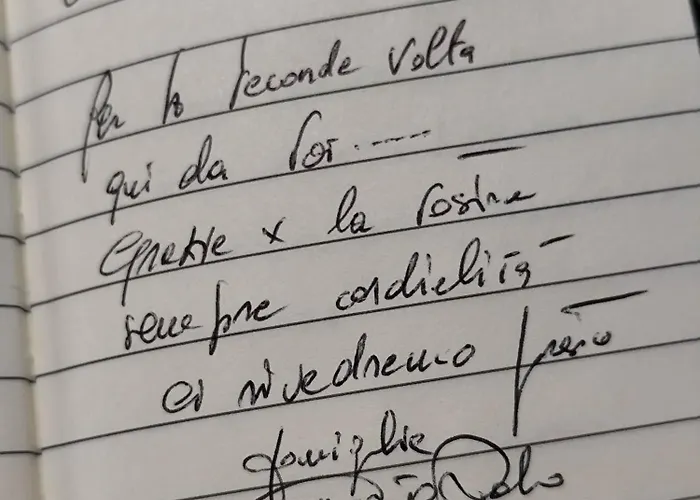 Per la seconda volta
qui da voi.......
Grazie x la vostra
sempre cordialità
ci rivedremo presto
famiglia